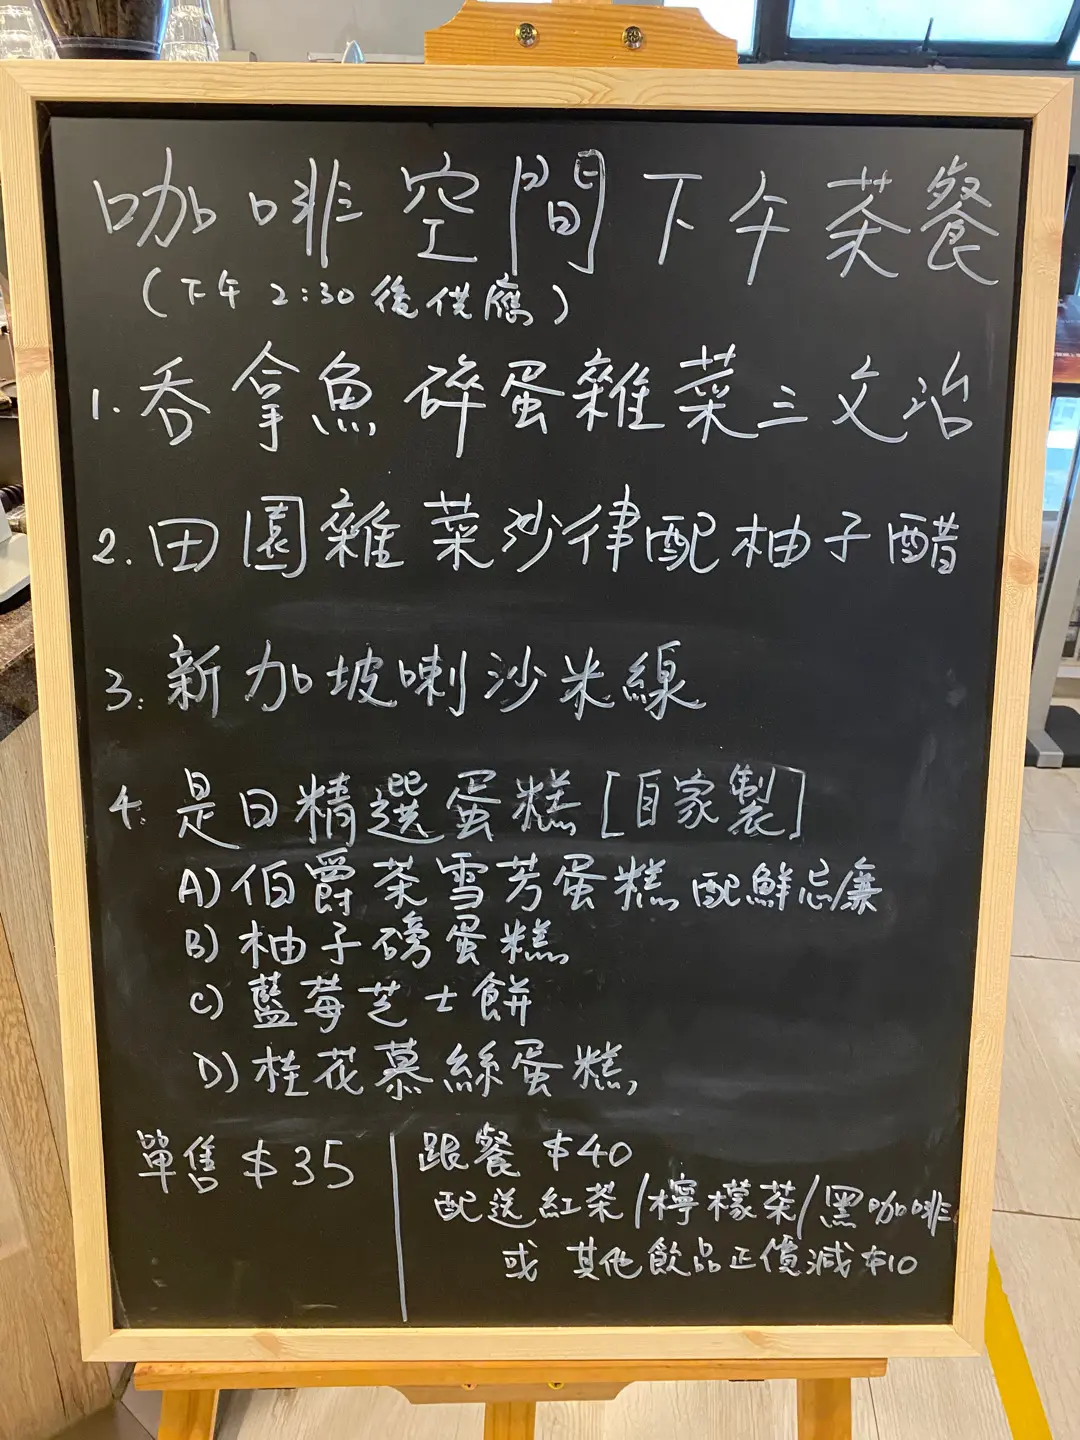 咖啡空間下午茶餐
(下午 2:30 後供應)
1. 吞拿魚碎蛋雜菜三文治
2. 田園雜菜沙律配柚子醋
3. 新加坡喇沙米線
4. 是日精選蛋糕 [自家製]
A) 伯爵茶雪芳蛋糕 配鮮忌廉
B) 柚子磅蛋糕
C) 藍莓芝士餅
D) 桂花慕絲蛋糕
單售 $35
跟餐 $40
配送紅茶/檸檬茶/黑咖啡
或 其他飲品正價減 $10